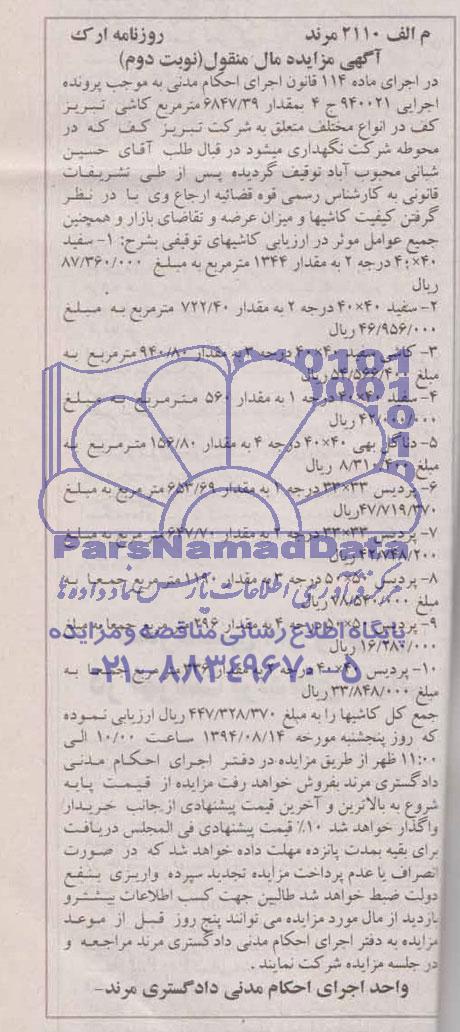 م الف ۲۱۱۰ مرند روزنامه ارک
آگهی مزایده مال منقول(نوبت دوم)
در اجرای ماده ۱۱۴ قانون اجرای احکام مدنی به موجب پرونده
اجرایی ۹۴۰۰۲۱ ج ۴ بمقدار ۶۸۴۷/۳۹ مترمربع کاشی تبریز
کف در انواع مختلف متعلق به شرکت تبریز کف که در
محوطه شرکت نگهداری میشود در قبال طلب آقای حسین
شبانی محبوب آباد توقیف گردیده پس از طی تشریفات
قانونی به کارشناس رسمی قوه قضائیه ارجاع وی با در نظر
گرفتن کیفیت کاشیها و میزان عرضه و تقاضای بازار و همچنین
جمیع عوامل موثر در ارزیابی کاشیهای توقیفی بشرح: ۱- سفید
۴۰×۴۰ درجه ۲ به مقدار ۱۳۴۴ مترمربع به مبلغ ۸۷/۳۶۰/۰۰۰
ریال
۲- سفید ۴۰×۴۰ درجه ۲ به مقدار ۷۲۲/۴۰ مترمربع به مبلغ
۴۶/۹۵۶/۰۰۰ ریال
۳- کاشی سفید ۴۰×۴۰ درجه ۳ به مقدار ۹۴۰/۸۰ مترمربع به
مبلغ ۵۴/۵۶۶/۴۰۰ ریال
۴- سفید ۴۰×۴۰ درجه ۱ به مقدار ۵۶۰ مترمربع به مبلغ
۴۲/۰۰۰/۰۰۰ ریال
۵- بهی ۴۰×۴۰ درجه ۴ به مقدار ۱۵۶/۸۰ مترمربع به
مبلغ ۸/۳۱۰/۴۰۰ ریال
۶- پردیس ۳۳×۳۳ درجه ۱ به مقدار ۶۵۳/۶۹ متر مربع به مبلغ
۴۷/۷۱۹/۳۷۰ریال
۷- پردیس ۳۳×۳۳ درجه ۲ به مقدار ۶۴۷/۷۰ متر مربع به مبلغ
۴۲/۷۴۸/۲۰۰ریال
۸- پردیس ۵۰×۵۰ درجه ۳ به مقدار ۱۱۹۰ متر مربع جمعا به
مبلغ ۷۸/۵۴۰/۰۰۰ ریال
۹- پردیس ۵۰×۵۰ درجه ۴ به مقدار ۲۹۶ متر مربع جمعا به مبلغ
۱۶/۲۸۰/۰۰۰ ریال
۱۰- پردیس ۴۰×۴۰ درجه به مقدار ۳۳۶ متر مربع جمعا به
مبلغ ۳۳/۸۴۸/۰۰۰ ریال
جمع کل کاشیها را به مبلغ ۴۴۷/۳۲۸/۳۷۰ ریال ارزیابی نموده
که روز پنجشنبه مورخه ۱۳۹۴/۰۸/۱۴ ساعت ۱۰/۰۰ الی
۱۱:۰۰ ظهر از طریق مزایده در دفتر اجرای احکام مدنی
دادگستری مرند بفروش خواهد رفت مزایده از قیمت پایه
شروع به بالاترین و آخرین قیمت پیشنهادی از جانب خریدار
واگذار خواهد شد ۱۰٪ قیمت پیشنهادی فی المجلس دریافت
برای بقیه بمدت پانزده مهلت داده خواهد شد که در صورت
انصراف یا عدم پرداخت مزایده تجدید سپرده واریزی بنفع
دولت ضبط خواهد شد طالبین جهت کسب اطلاعات بیشتر و
بازدید از مال مورد مزایده می توانند پنج روز قبل از موعد
مزایده به دفتر اجرای احکام مدنی دادگستری مرند مراجعه و
در جلسه مزایده شرکت نمایند .
واحد اجرای احکام مدنی دادگستری مرند-
ParsNamadData
مرکز فرآوری اطلاعات پارس نماد داده ها
پایگاه اطلاع رسانی مناقصه و مزایده
۰۲۱-۸۸۳۴۹۶۷۰-۵